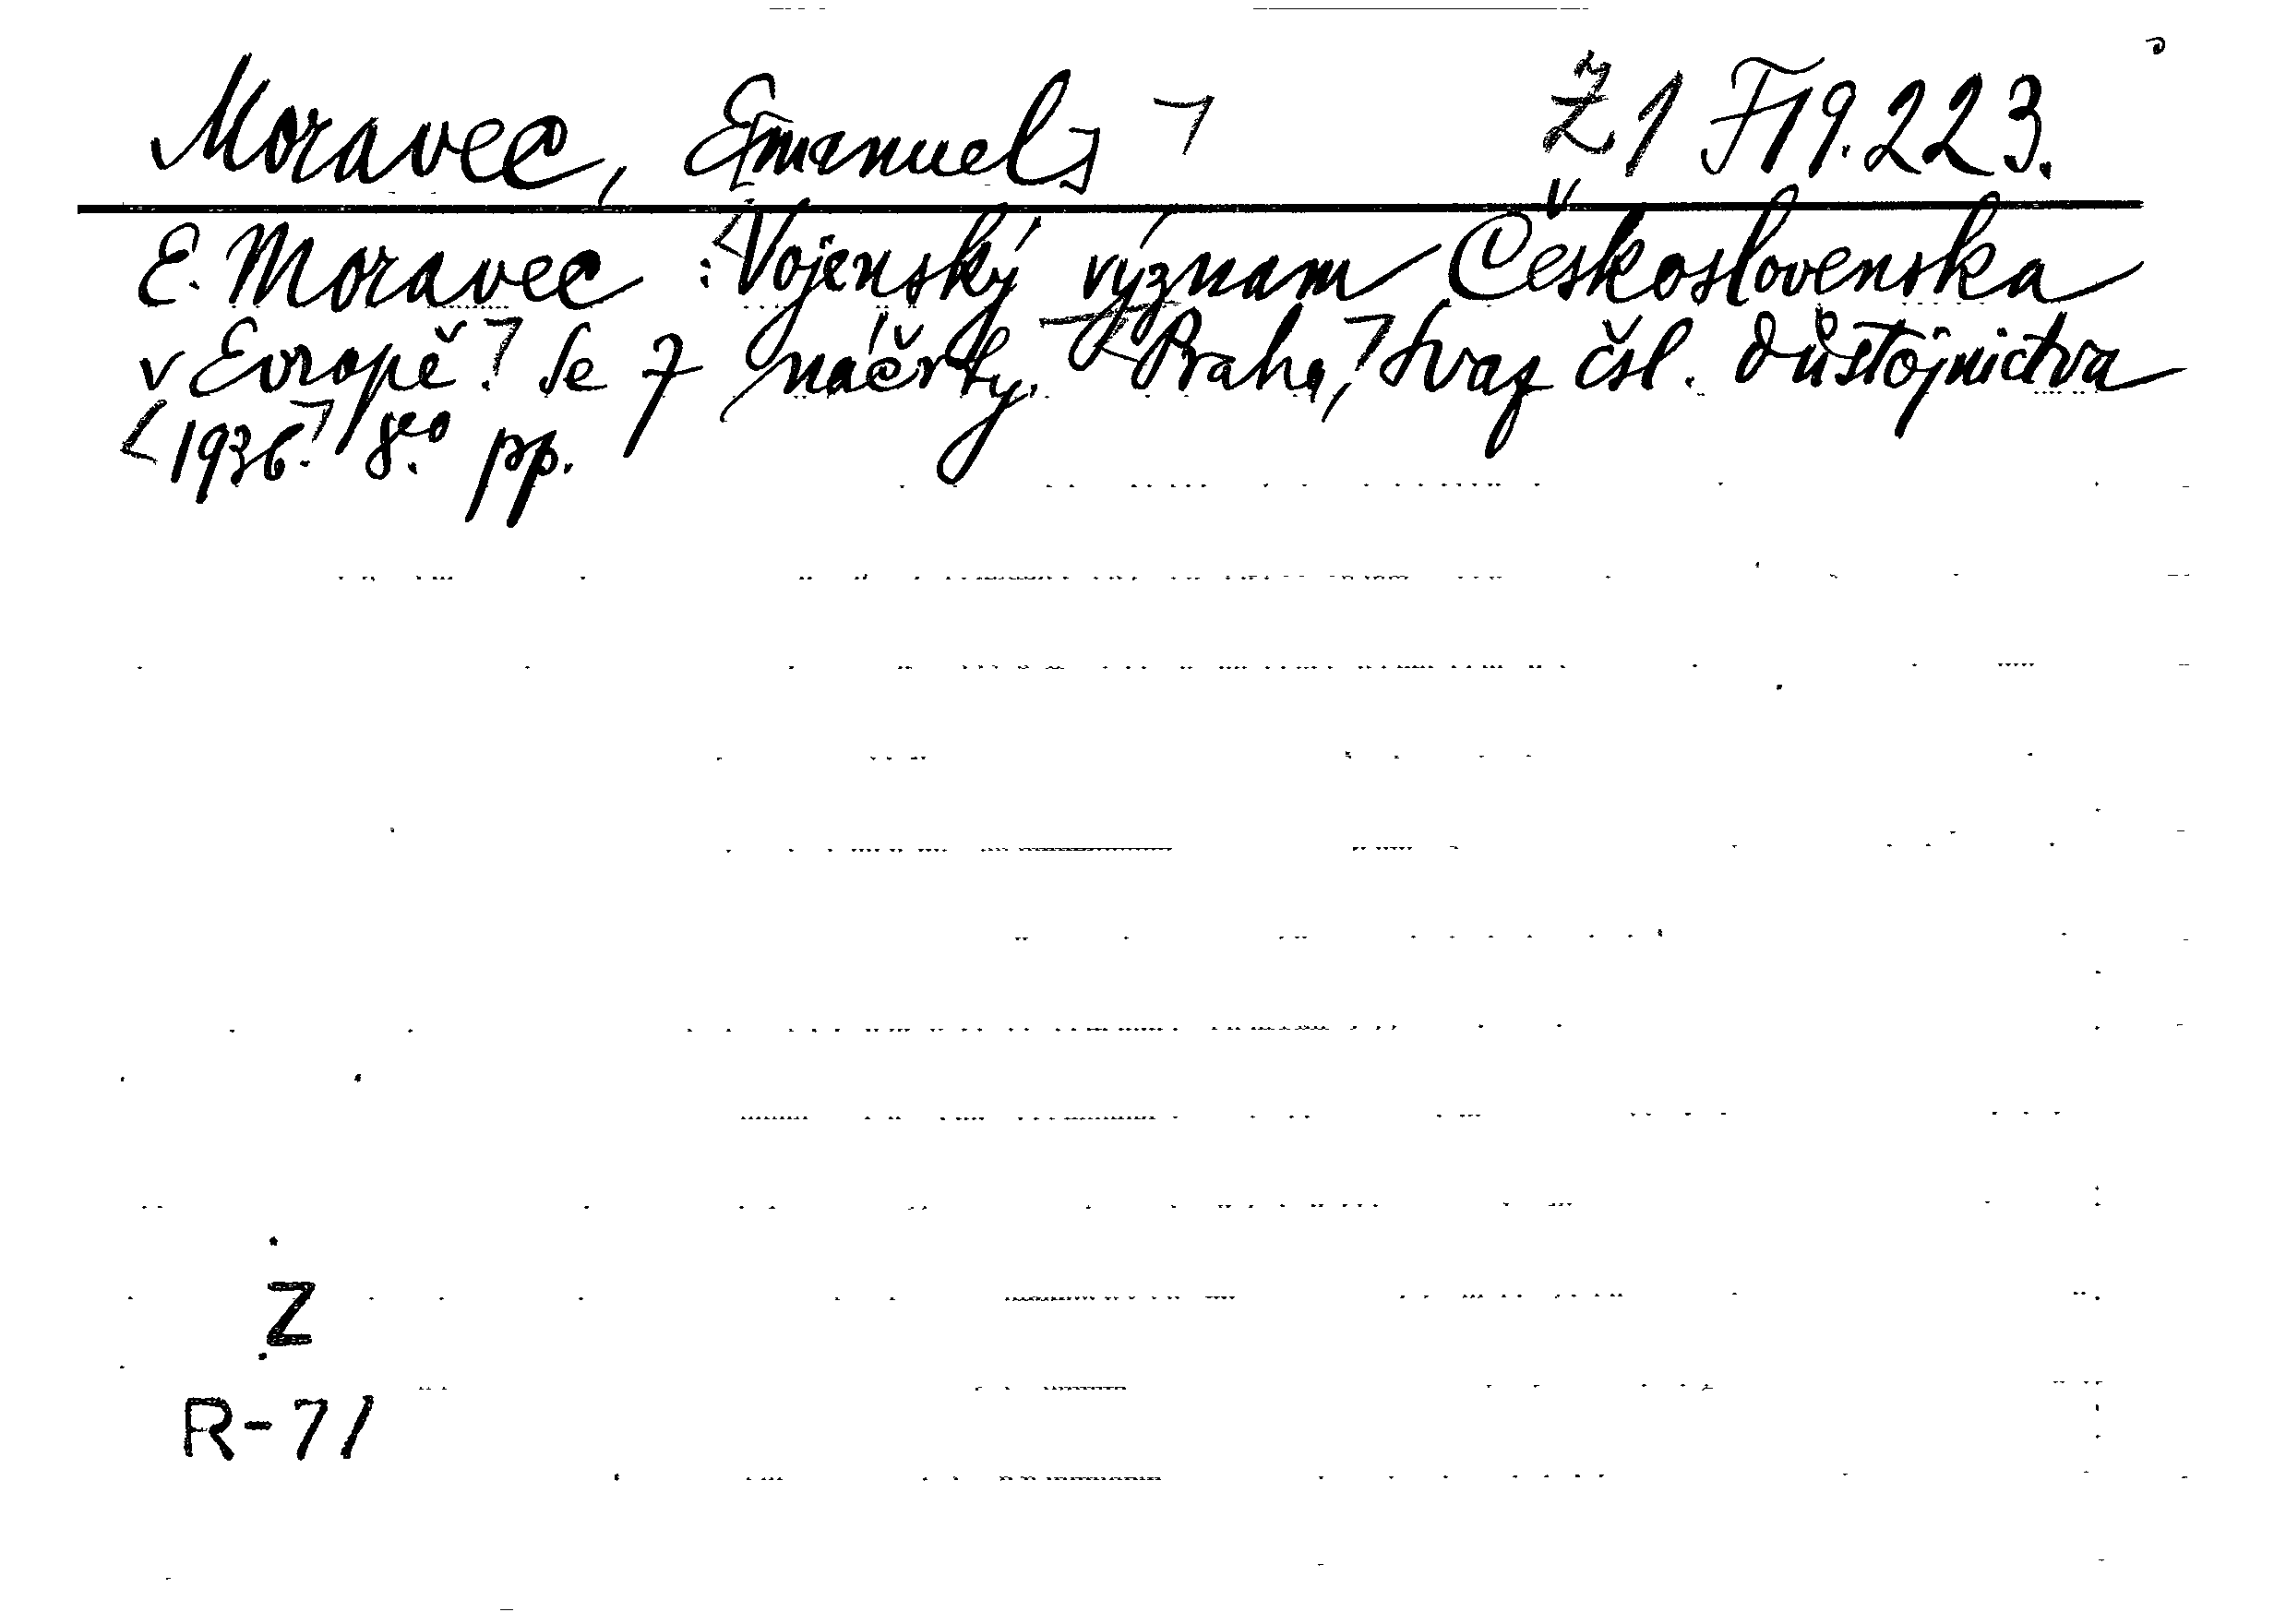 Moravec, E[manuel] Ž 1 F 19.223.
E. Moravec: Vojenský význam Československa
v Evropě. Se 7 náčrty. Praha, Svaz čsl. důstojnictva
1936. 8° pp.
Z
R-71